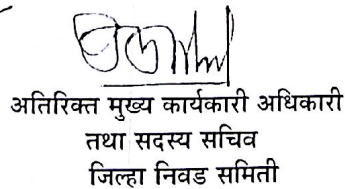 अतिरिक्त मुख्य कार्यकारी अधिकारी
तथा सदस्य सचिव
जिल्हा निवड समिती